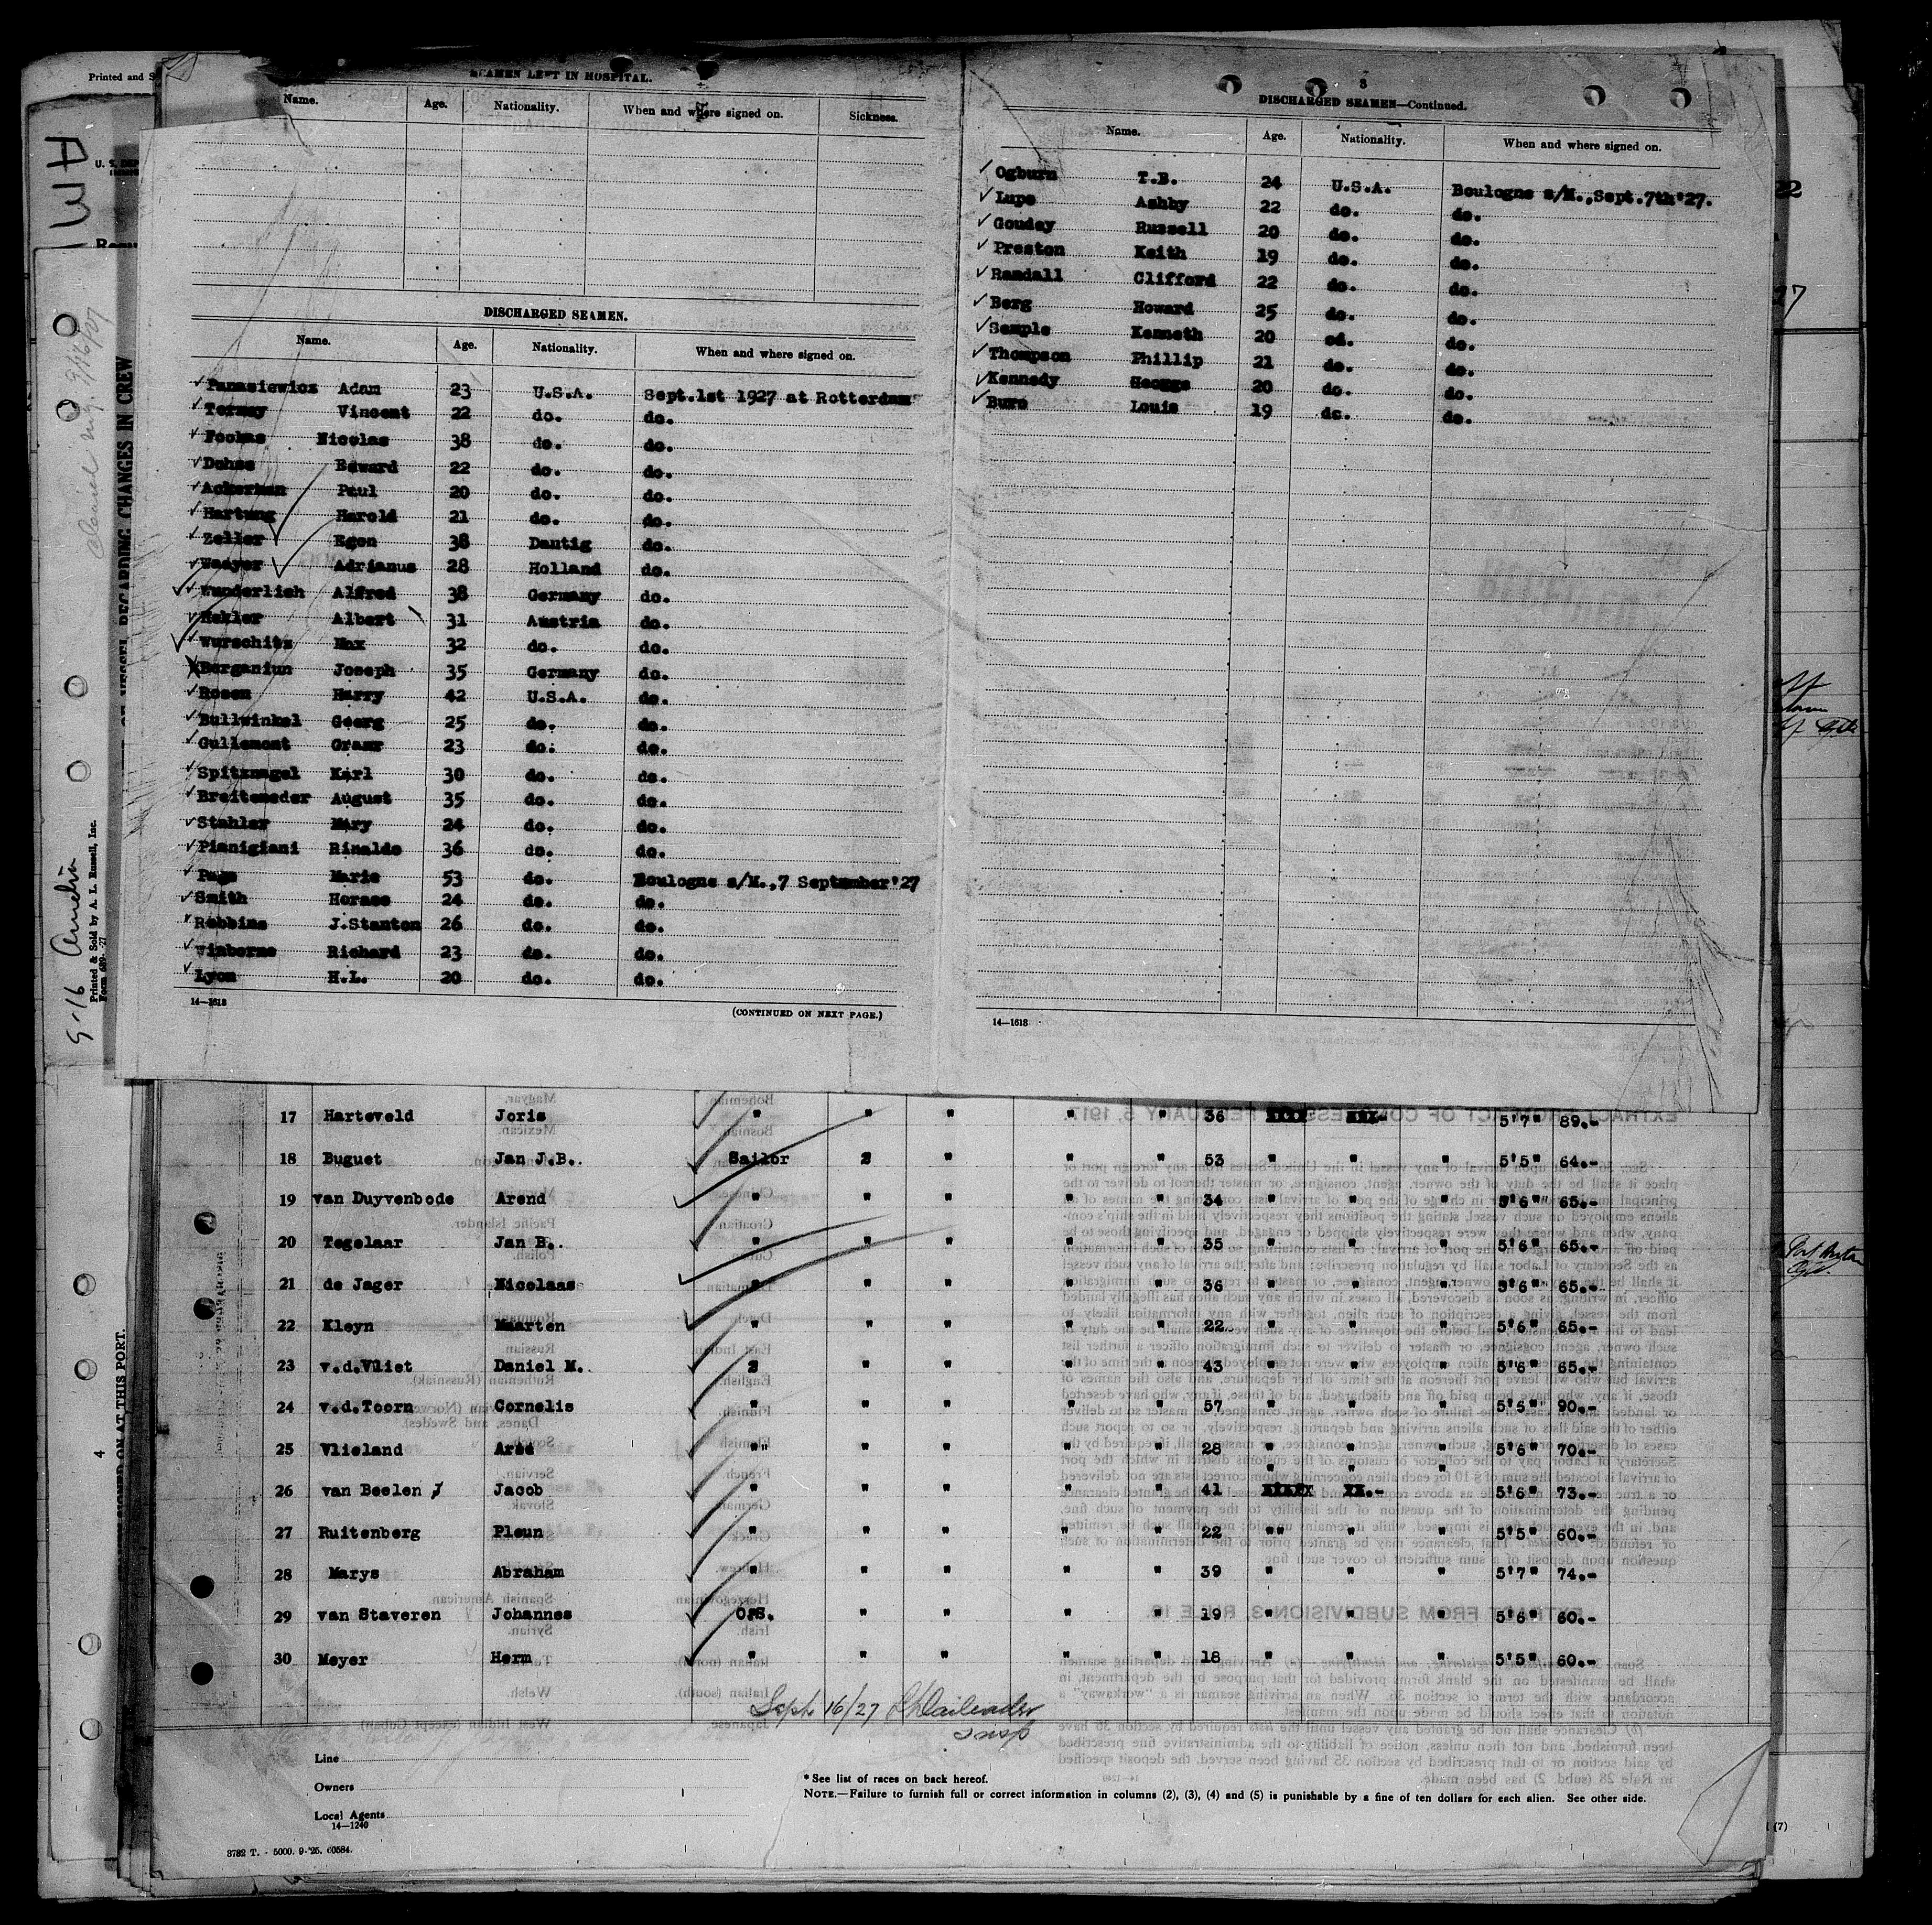 SEAMEN LEFT IN HOSPITAL.
Name. Age. Nationality. When and where signed on. Sickness.
DISCHARGED SEAMEN.
Name. Age. Nationality. When and where signed on.
Panasiewicz Adam 23 U.S.A. Sept.1st 1927 at Rotterdam
Tormay Vincent 22 do. do.
Fochas Nicolas 38 do. do.
Dohse Edward 22 do. do.
Ackerman Paul 20 do. do.
Hartung Harold 21 do. do.
Zeller Egon 38 Dantig do.
Adrianus 28 Holland do.
Wunderlich Alfred 38 Germany do.
Albert 31 Austria do.
Wurschitz Max 32 do. do.
Joseph 35 Germany do.
Rosen Harry 42 U.S.A. do.
Bullwinkel Georg 25 do. do.
Gullemont 23 do. do.
Spitznagel Karl 30 do. do.
Breiteneder August 35 do. do.
Stahler Mary 24 do. do.
Pianigiani Rinaldo 36 do. do.
Page Marie 53 do. Boulogne s/M.,7 September'27
Smith Horace 24 do. do.
Robbins J.Stanton 26 do. do.
Winborne Richard 23 do. do.
Lyon H.L. 20 do. do.
14—1618
(CONTINUED ON NEXT PAGE.)
3
DISCHARGED SEAMEN—Continued.
Name. Age. Nationality. When and where signed on.
Ogburn T.B. 24 U.S.A. Boulogne s/M.,Sept.7th'27.
Lupo Ashby 22 do. do.
Goudey Russell 20 do. do.
Preston Keith 19 do. do.
Randall Clifford 22 do. do.
Berg Howard 25 do. do.
Semple Kenneth 20 od. do.
Thompson Phillip 21 do. do.
Kennedy 20 do. do.
Louis 19 do. do.
14—1618
17 Harteveld Joris " " " " " 36 5'7" 89.-
18 Buguet Jan J.B. Sailor 2 " " " 53 " " " 5'5" 64.-
19 van Duyvenbode Arend " " " " " 34 " " " 5'6" 65.-
20 Tegelaar Jan B. " " " " " 35 " " " 5'6" 65.-
21 de Jager Nicolaas " " " " " 36 " " " 5'6" 65.-
22 Kleyn Maarten " " " " " 22 " " " 5'6" 65.-
23 v.d.Vliet Daniel M. " " " " 43 " " " 5'6" 65.-
24 v.d.Toorn Cornelis " " " " " 57 " " " 5'6" 90.-
25 Vlieland " " " " " 28 " " " 5'6" 70.-
26 van Beelen J Jacob " " " " " 41 " " " 5'6" 73.-
27 Ruitenberg Pleun " " " " " 22 " " " 5'5" 60.-
28 Marys Abraham " " " " " 39 " " " 5'7" 74.-
29 van Staveren Johannes O.S. " " " " 19 " " " 5'6" 60.-
30 Meyer Herm " " " " " 18 " " " 5'5" 60.-
Sept 16/27
Insp
Line
Owners
Local Agents
14—1240
* See list of races on back hereof.
NOTE.—Failure to furnish full or correct information in columns (2), (3), (4) and (5) is punishable by a fine of ten dollars for each alien. See other side.
3782 T. - 5000. 9-'25. 60584.
Printed & Sold by A. L. Russell, Inc.
Form 689- -27
REGARDING CHANGES IN CREW
SIGNED ON AT THIS PORT.
4
9-16
Printed and S
(7)